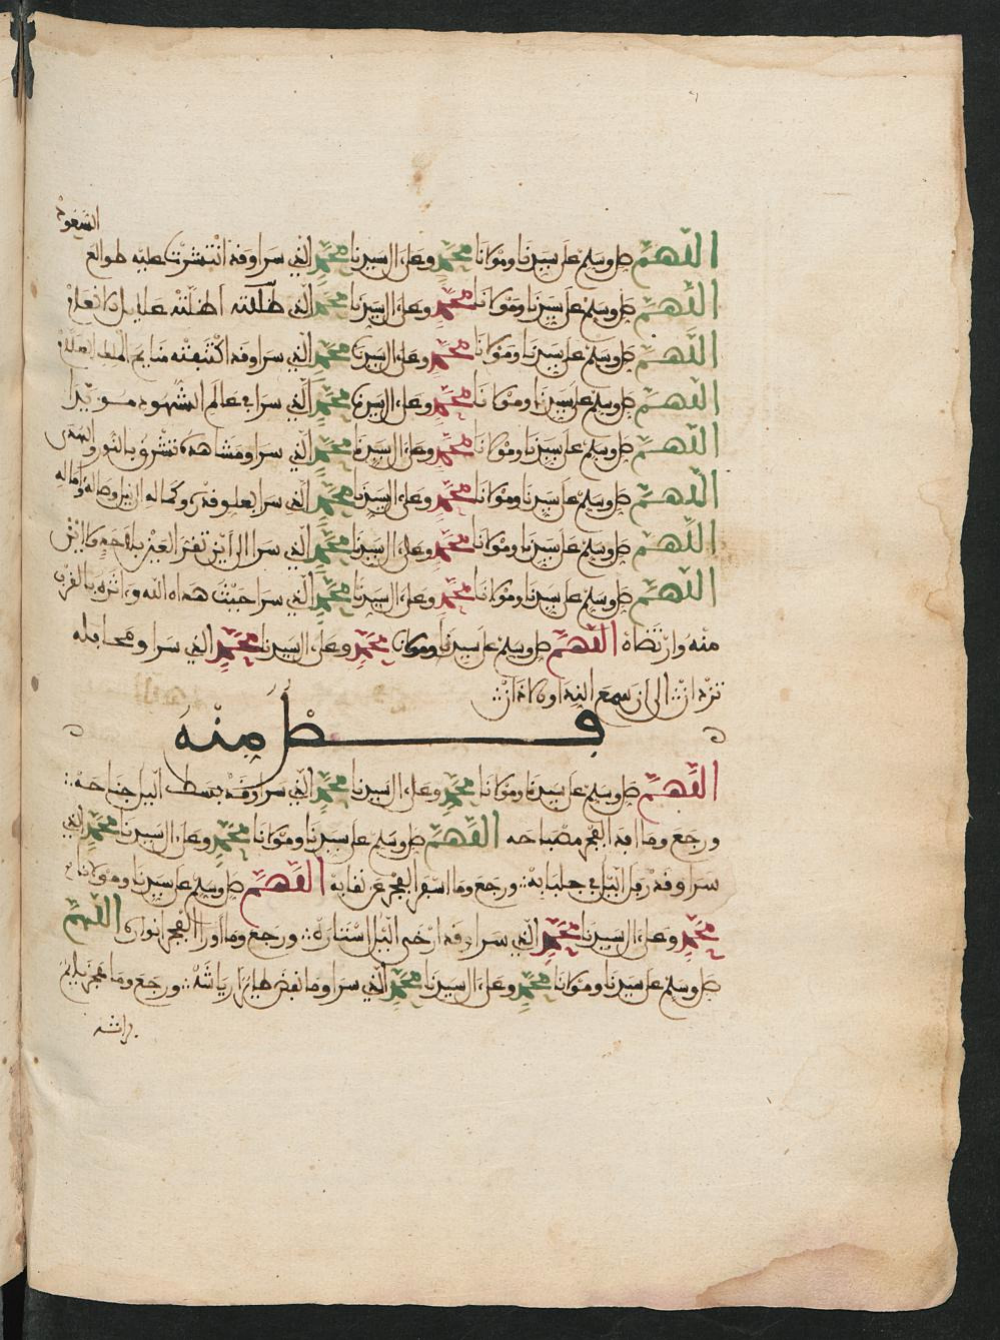 السعود
اللهم صل وسلم على سيدنا ومولانا محمد وعلى ءال سيدنا محمد الذي سرا وقد انتشرت عليه طوالع
اللهم صل وسلم على سيدنا ومولانا محمد وعلى ءال سيدنا محمد الذي ظللته
اللهم صل وسلم على سيدنا ومولانا محمد وعلى ءال سيدنا محمد الذي سرا وقد اكتنفته
اللهم صل وسلم على سيدنا ومولانا محمد وعلى ءال سيدنا محمد الذي سرا في عالم الشهود
اللهم صل وسلم على سيدنا ومولانا محمد وعلى ءال سيدنا محمد الذي سرا ومشاهده تشرق بالنور
اللهم صل وسلم على سيدنا ومولانا محمد وعلى ءال سيدنا محمد الذي سرا لعلو قدره وكماله
اللهم صل وسلم على سيدنا ومولانا محمد وعلى ءال سيدنا محمد الذي سرا الى اين تقر العين
اللهم صل وسلم على سيدنا ومولانا محمد وعلى ءال سيدنا محمد الذي سرا حيث هداه الله وءاثره بالقرب
منه وارتضاه اللهم صل وسلم على سيدنا ومولانا محمد وعلى ءال سيدنا محمد الذي سرا ومحافله
تزدان الى ان سمع الندا والاذان
فصل منه
اللهم صل وسلم على سيدنا ومولانا محمد وعلى ءال سيدنا محمد الذي سرا وقد بسط اليل جناحه
ورجع وما اقد الفجر مصباحه اللهم صل وسلم على سيدنا ومولانا محمد وعلى ءال سيدنا محمد الذي
سرا وقد رفل اليل في جلبابه ورجع وما اسفر الفجر عن نقابه اللهم صل وسلم على سيدنا ومولانا
محمد وعلى ءال سيدنا محمد الذي سرا وقد ارخى اليل استاره ورجع وما اورا الفجر انواره اللهم
صل وسلم على سيدنا ومولانا محمد وعلى ءال سيدنا محمد الذي سرا وما نفض طائر رياشه ورجع وما